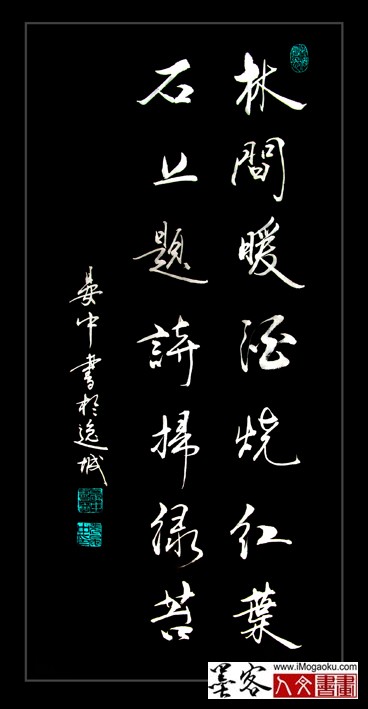 林間暖酒烧红葉
石上題詩掃绿苔
晏中書於逸城
墨客
www.iMogaoku.com
人文書畫